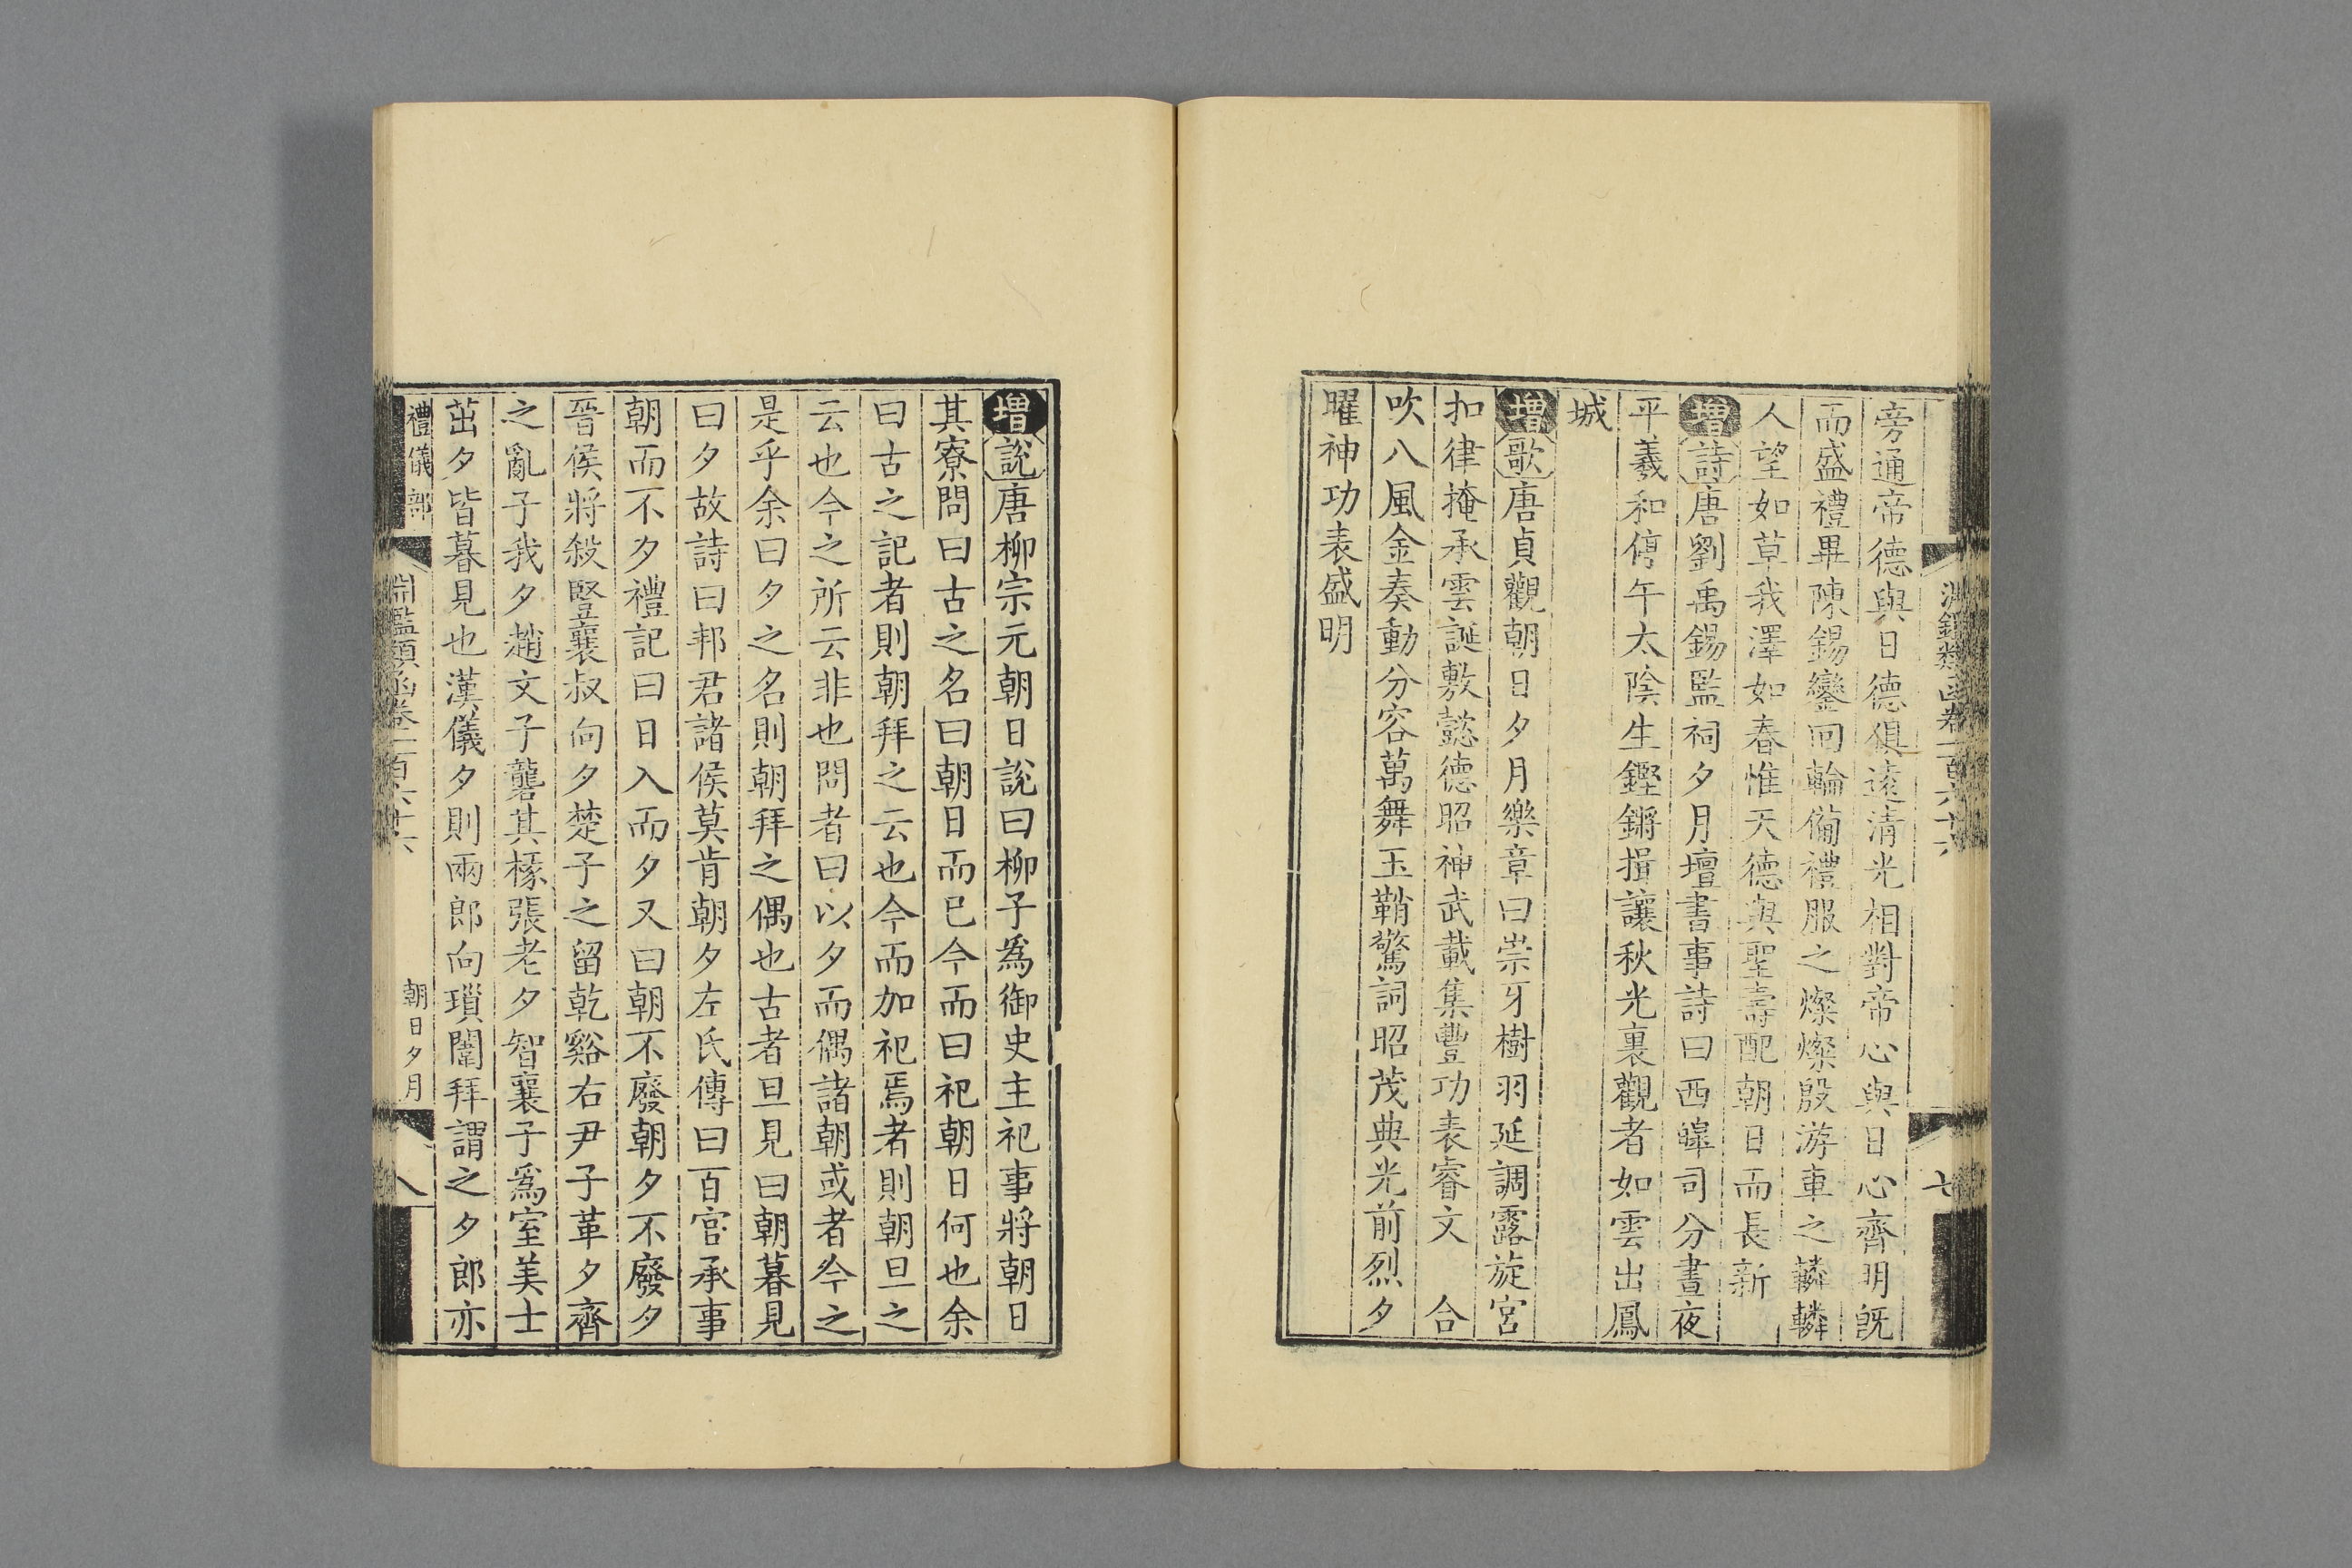 旁通帝德與日德俱遠清光相對帝心與日心齊明既
而盛禮畢陳錫鑾回輪備禮服之燦燦殷游車之轔轔
人望如草我澤如春惟天德與聖壽配朝日而長新
增詩唐劉禹錫監祠夕月壇書事詩曰西皥司分晝夜
平羲和停午太陰生鏗鏘揖讓秋光裏觀者如雲出鳳
城
增歌唐貞觀朝日夕月樂章曰崇牙樹羽延調露旋宮
扣律掩承雲誕敷懿德昭神武載集豐功表睿文 合
吹八風金奏動分容萬舞玉鞘驚詞昭茂典光前烈夕
曜神功表盛明
七
增說唐柳宗元朝日說曰柳子爲御史主祀事將朝日
其寮問曰古之名曰朝日而已今而曰祀朝日何也余
曰古之記者則朝拜之云也今而加祀焉者則朝旦之
云也今之所云非也問者曰以夕而偶諸朝或者今之
是乎余曰夕之名則朝拜之偶也古者旦見曰朝暮見
曰夕故詩曰邦君諸侯莫肯朝夕左氏傳曰百官承事
朝而不夕禮記曰日入而夕又曰朝不廢朝夕不廢夕
晉侯將殺豎襄叔向夕楚子之留乾谿右尹子革夕齊
之亂子我夕趙文子礱其椽張老夕智襄子爲室美士
茁夕皆暮見也漢儀夕則兩郎向瑣闈拜謂之夕郎亦
禮儀部 淵鑑類函卷一百六十六 朝日夕月 八